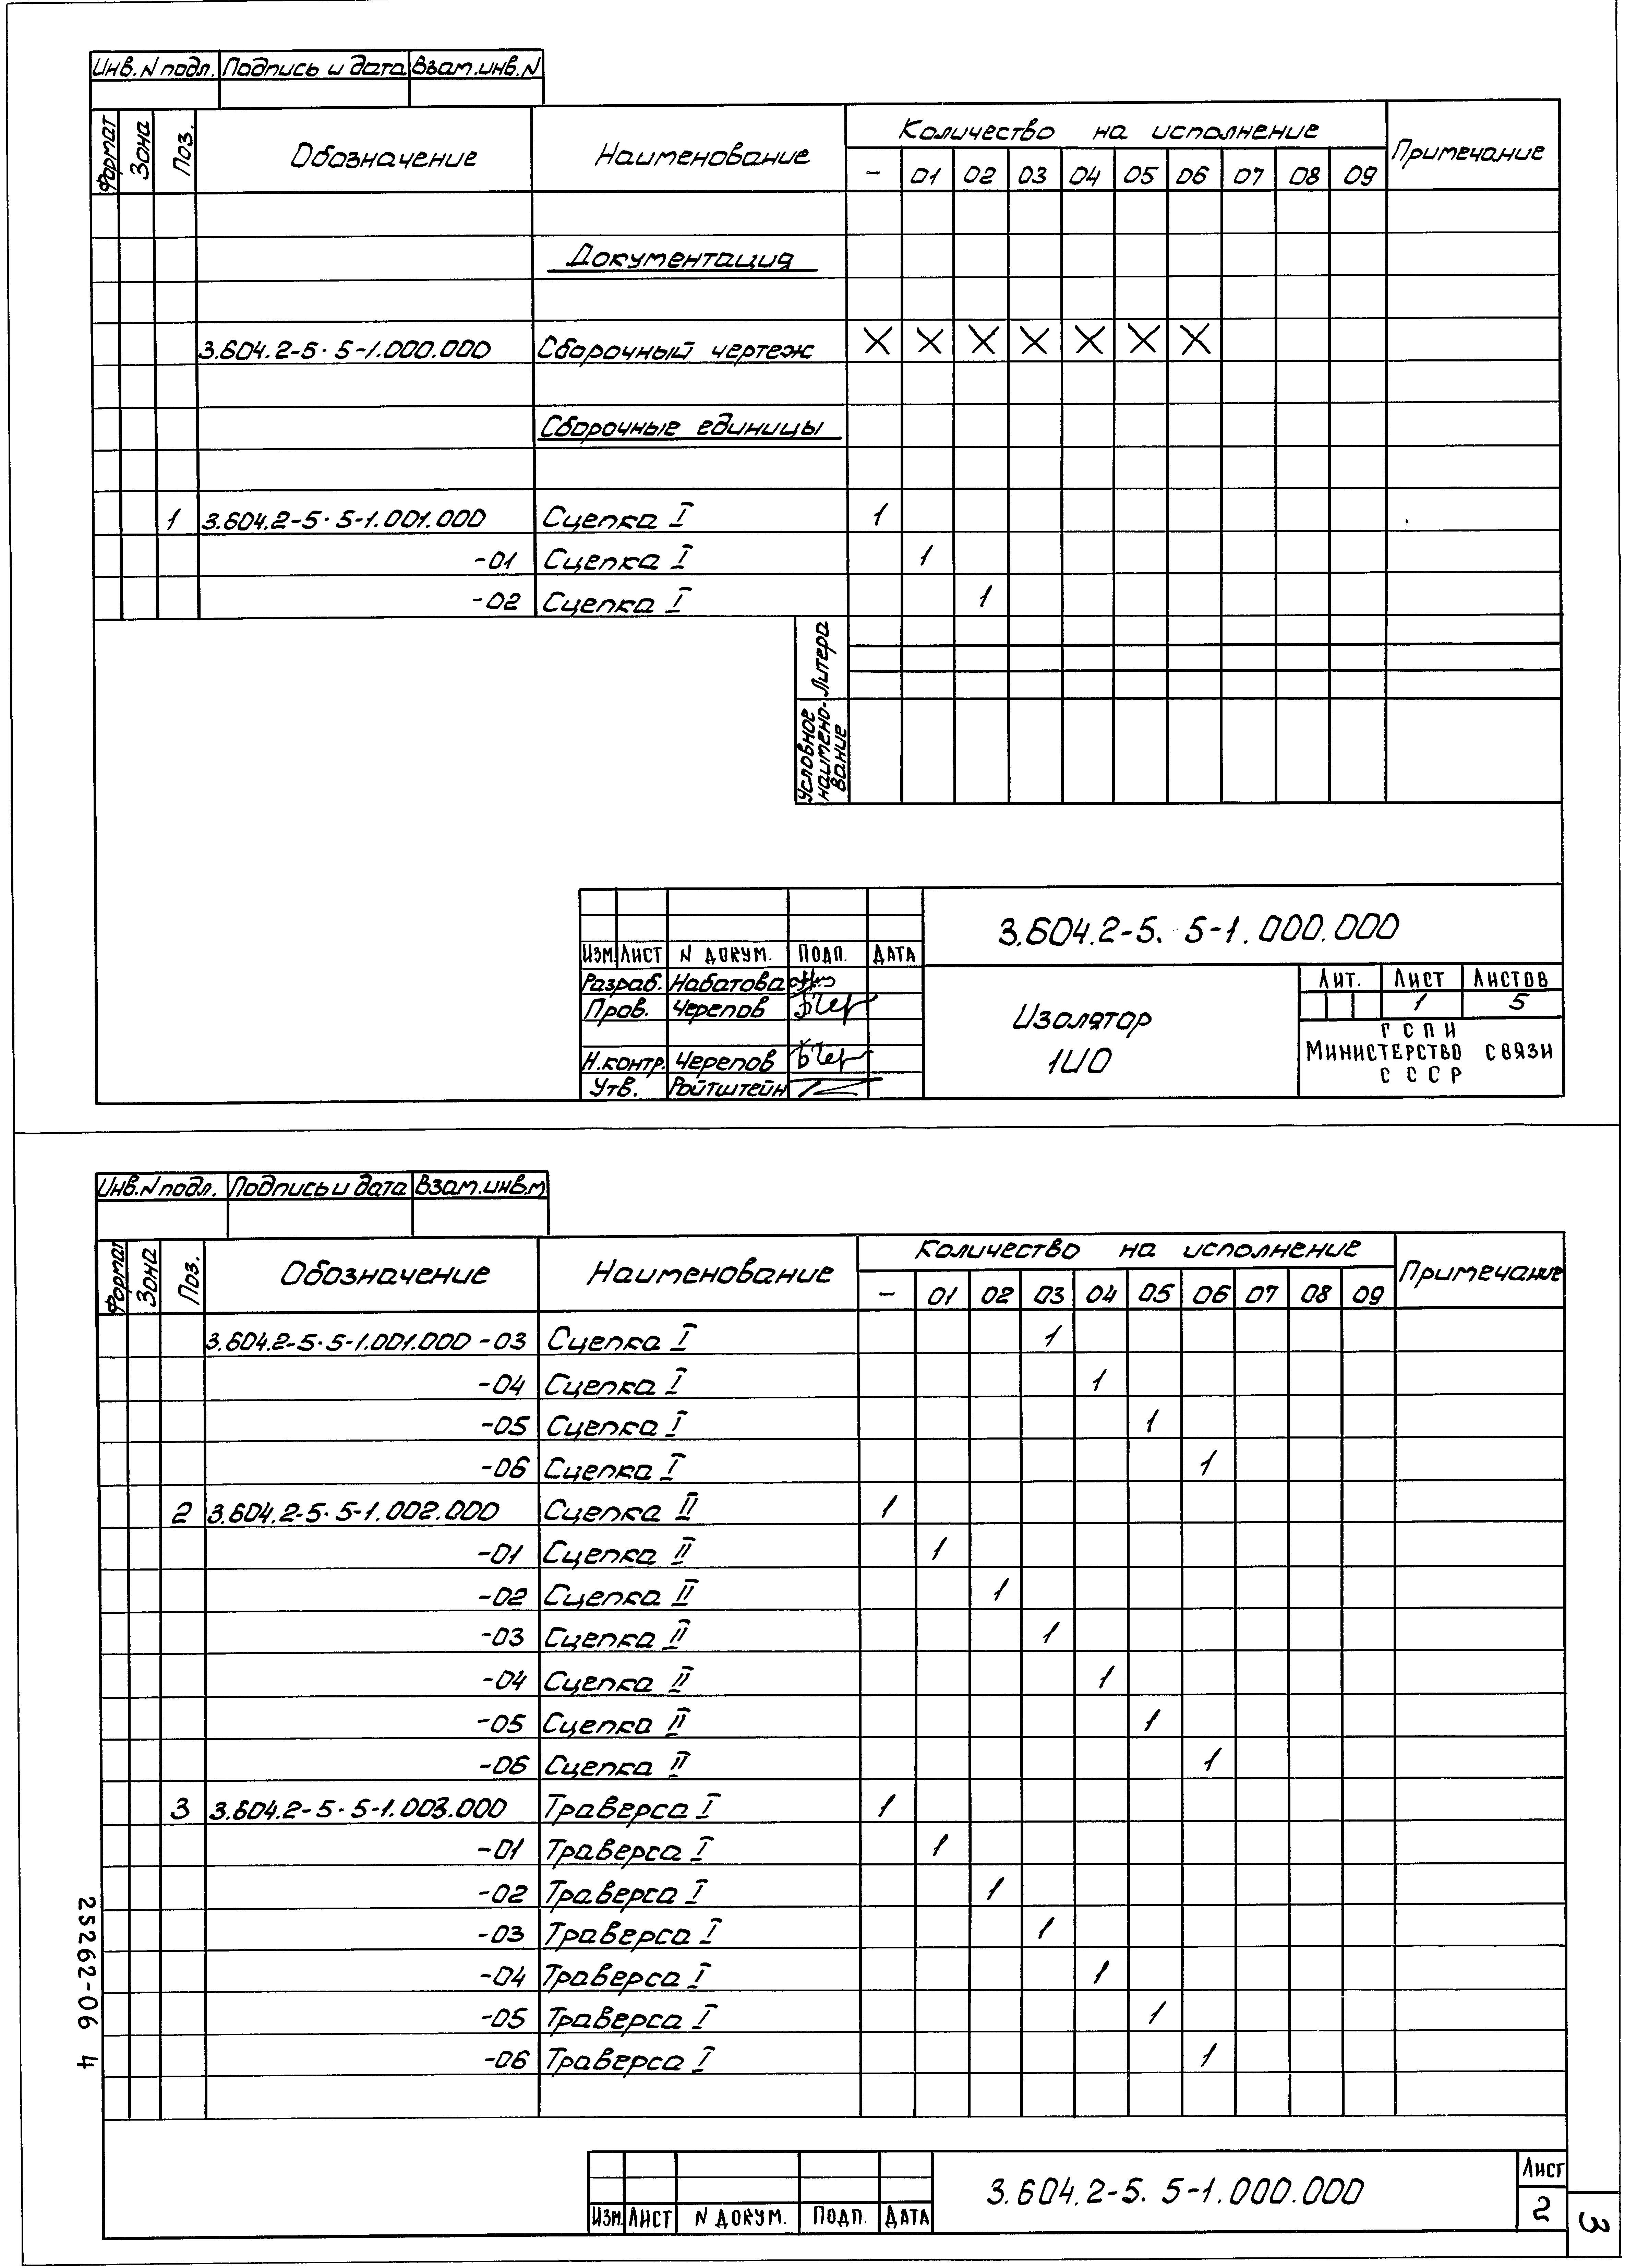 Инв. N подл. Подпись и дата Взам. инв. N
Формат Зона Поз. Обозначение Наименование Количество на исполнение Примечание
- 01 02 03 04 05 06 07 08 09
Документация
3.604.2-5. 5-1.000.000 Сборочный чертеж X X X X X X X
Сборочные единицы
1 3.604.2-5. 5-1.001.000 Сцепка I 1
-01 Сцепка I 1
-02 Сцепка I 1
Литера
Условное наимено-вание
3.604.2-5. 5-1.000.000
Изм Лист N докум. Подп. Дата
Разраб. Набатова
Пров. Черепов
Н.контр. Черепов
Утв. Ройтштейн
Изолятор
1ИО
Лит. Лист Листов
1 5
ГСПИ
Министерство связи
СССР
Инв. N подл. Подпись и дата Взам. инв. N
Формат Зона Поз. Обозначение Наименование Количество на исполнение Примечание
- 01 02 03 04 05 06 07 08 09
3.604.2-5. 5-1.001.000 -03 Сцепка I 1
-04 Сцепка I 1
-05 Сцепка I 1
-06 Сцепка I 1
2 3.604.2-5. 5-1.002.000 Сцепка II 1
-01 Сцепка II 1
-02 Сцепка II 1
-03 Сцепка II 1
-04 Сцепка II 1
-05 Сцепка II 1
-06 Сцепка II 1
3 3.604.2-5. 5-1.003.000 Траверса I 1
-01 Траверса I 1
-02 Траверса I 1
-03 Траверса I 1
-04 Траверса I 1
-05 Траверса I 1
-06 Траверса I 1
25262-06 4
Изм Лист N докум. Подп. Дата
3.604.2-5. 5-1.000.000
Лист
2
3